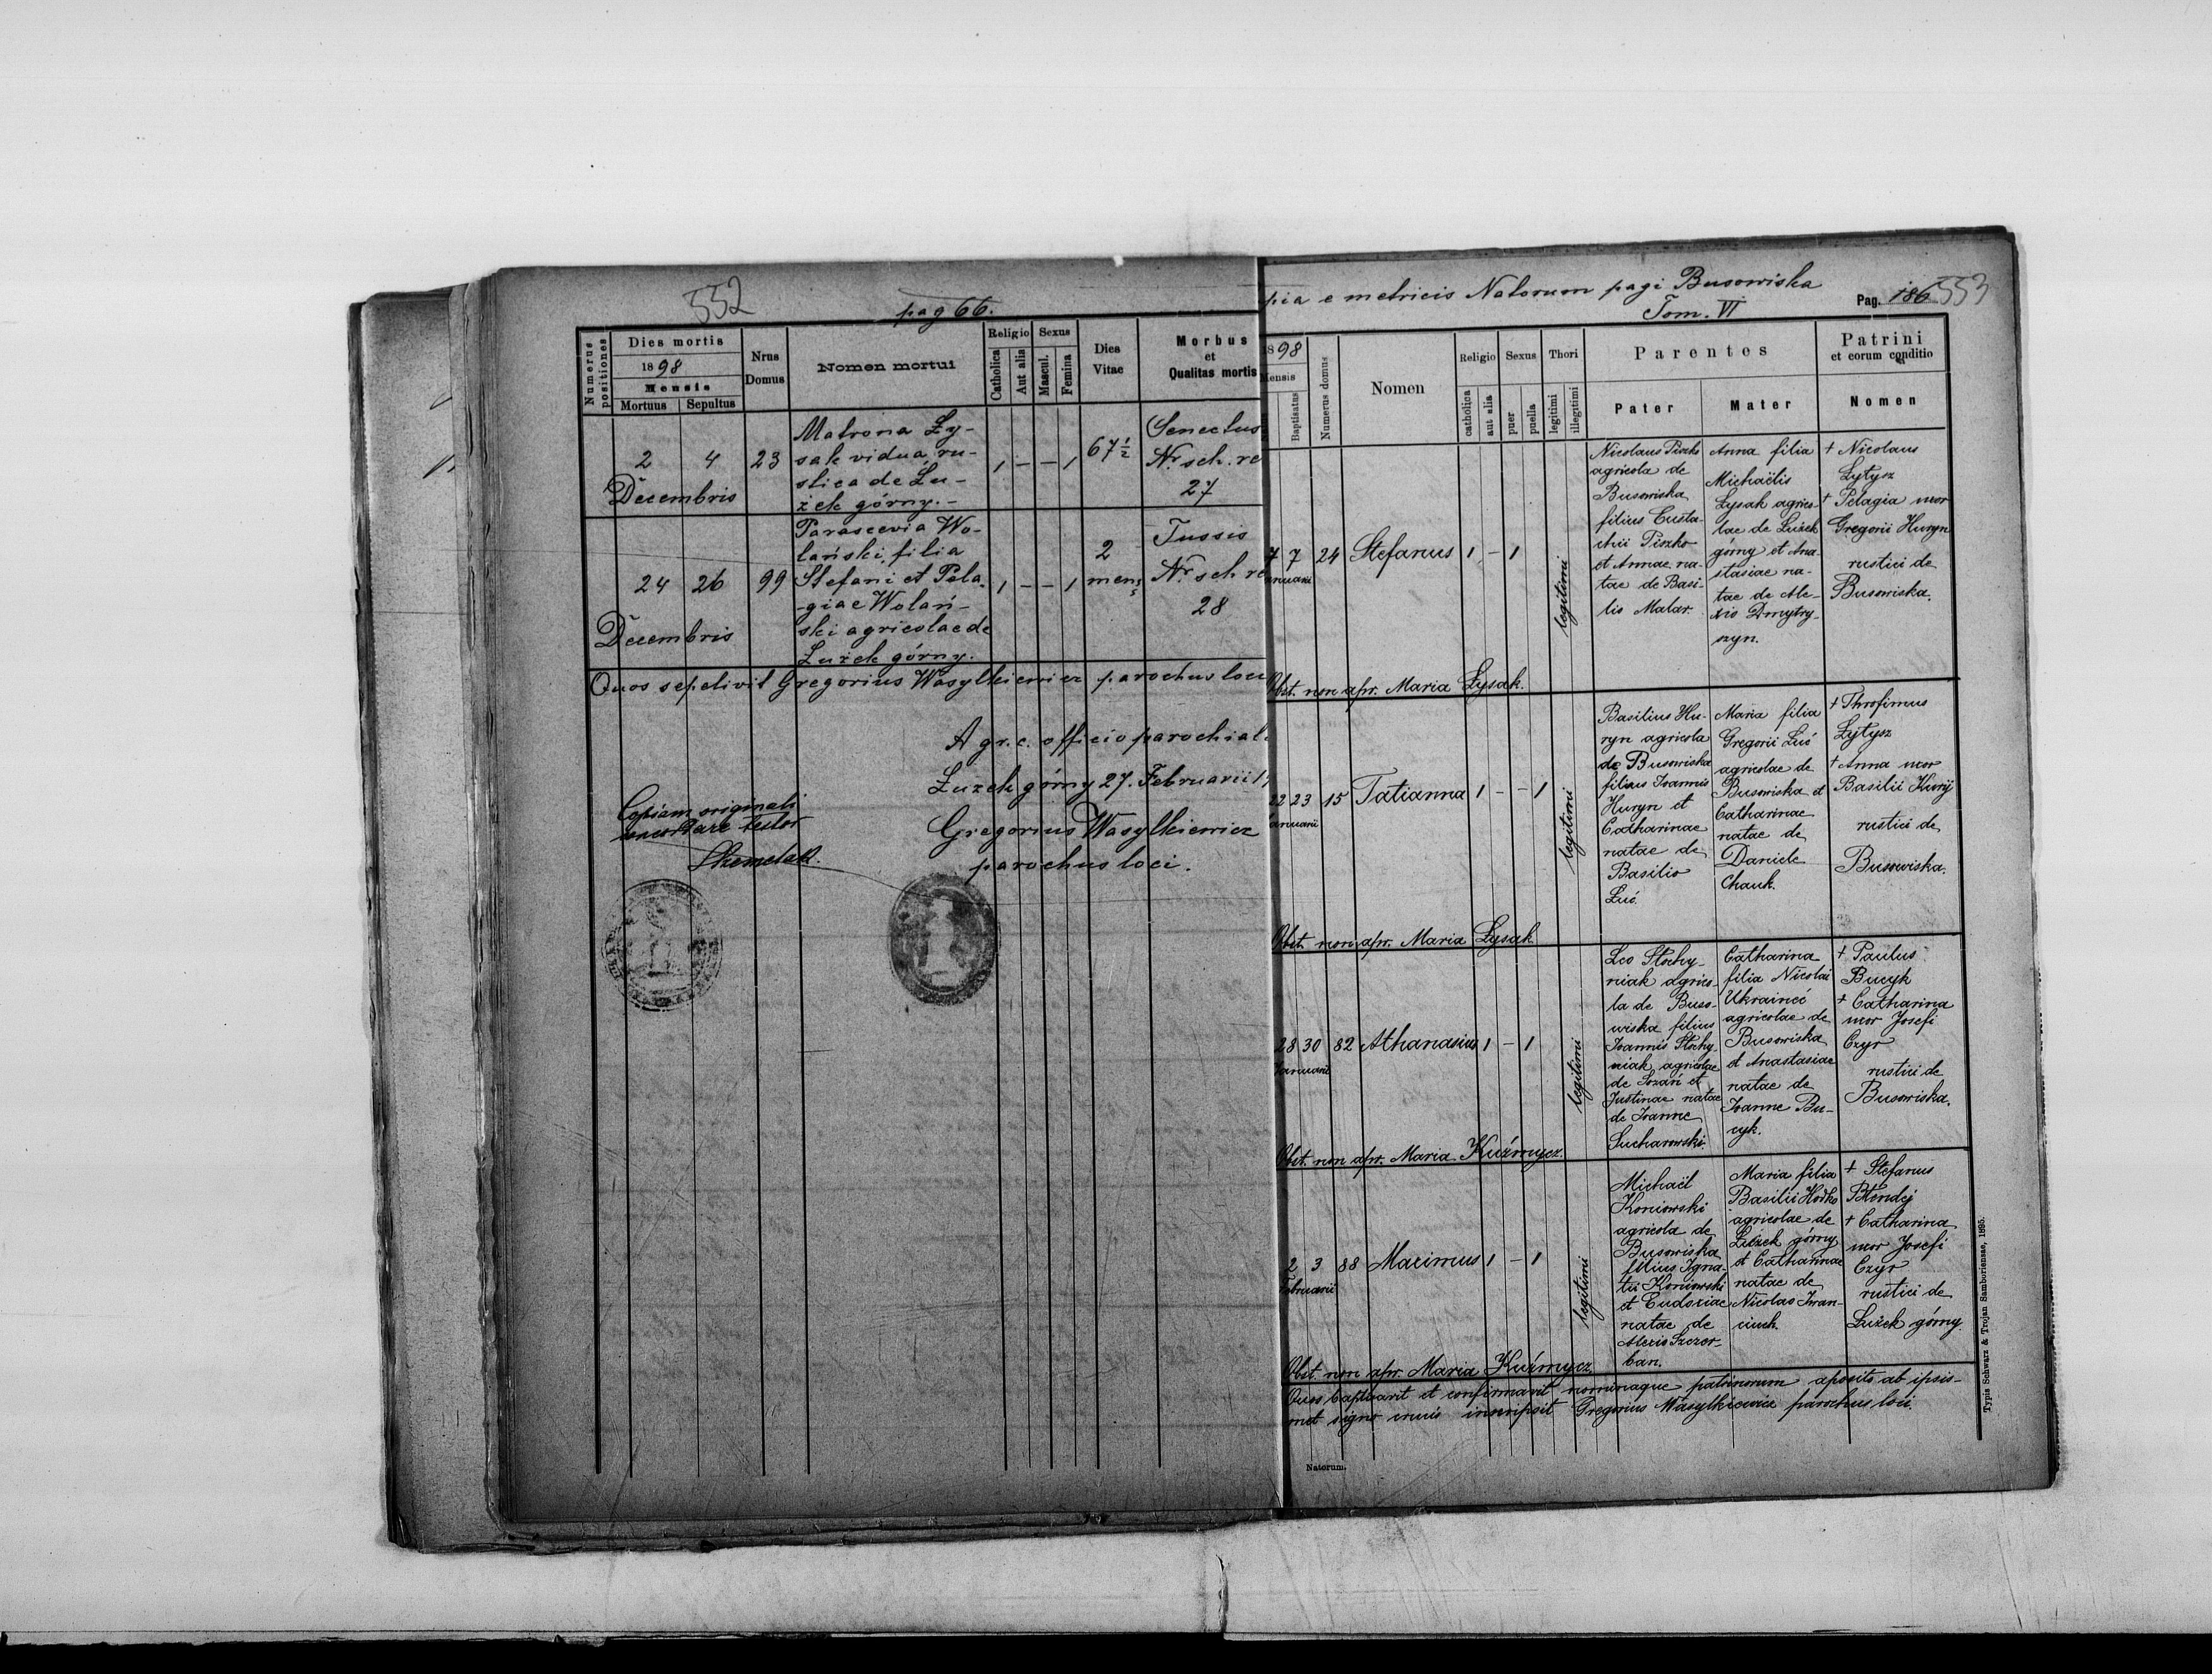 552
pag 66.
Numerus positiones
Dies mortis
1898
Mensis
Mortuus
Sepultus
Nrus Domus
Nomen mortui
Religio
Catholica
Aut alia
Sexus
Mascul.
Femina
Dies Vitae
Morbus
et
Qualitas mortis
2 4
Decembris
23
Matrona Ły-
sak vidua, ru-
stica de Łu-
żek górny.-
1 - - 1
67 1/2
Senectus
Nr. sch. re
27
24 26
Decembris
99
Parascevia Wo-
lański, filia
Stefani et Pela-
-giae Wolań-
ski agricolae de
Łużek górny.
1 - - 1
2
mens
Tussis
Nr. sch re
28
Quos sepelivit Gregorius Wasylkiewicz parochus loci
A gr. c. officio parochiali
Łużek górny 27. Februarii 1
Gregorius Wasylkiewicz
parochus loci.
Copiam originali
concordare testor
pia e metricis Natorum pagi Busowiska
Tom. VI
Pag. 186
553
1898
Mensis
Baptisatus
Numerus domus
Nomen
Religio
catholica
aut alia
Sexus
puer
puella
Thori
legitimi
illegitimi
Parentes
Pater
Mater
Patrini
et eorum conditio
Nomen
7 7
Januarii
24
Stefanus
1 - 1
legitimi
Nicolaus Piszko
agricola de
Busowiska
filius Eusta-
chii Piszko
et Annae na-
tae de Basi-
lio Malar.
Anna filia
Michaëlis
Łysak agrico-
lae de Łużek
górny et Ana-
stasiae na-
tae de Ale-
xio Dmytry-
szyn.
+ Nicolaus
Łytysz
+ Pelagia uxor
Gregorii Huryn
rustici de
Busowiska.
Obst. non apr. Maria Łysak.
22 23
Januarii
15
Tatianna
1 - - 1
legitimi
Basilius Hu-
ryn agricola
de Busowiska
filius Joannis
Huryn et
Catharinae
natae de
Basilio
Łuć.
Maria filia
Gregorii Łuć
agricolae de
Busowiska et
Catharinae
natae de
Daniele
Chauk.
+ Throfimus
Łytysz
+ Anna uxor
Basilii Huryj
rustici de
Busowiska.
Obst. non apr. Maria Łysak
28 30
Januarii
82
Athanasius
1 - 1
legitimi
Leo Stochy-
niak agrico-
la de Buso-
wiska filius
Joannis Stochy-
niak agricolae
de Sozań et
Justinae natae
de Joanne
Sucharowski.
Catharina
filia Nicolai
Ukraineć
agricolae de
Busowiska
et Anastasiae
natae de
Joanne Bu-
cyk.
+ Paulus
Bucyk
+ Catharina
uxor Josefi
Czyr
rustici de
Busowiska.
Obst. non apr. Maria Kuźmycz.
2 3
Februarii
88
Maximus
1 - 1
legitimi
Michaël
Koniowski
agricola de
Busowiska
filius Igna-
tii Koniowski
et Eudoxiae
natae de
Alexio Szczer-
ban.
Maria filia
Basilii Hodko
agricolae de
Łużek górny
et Catharinae
natae de
Nicolao Iwan-
ciuch.
+ Stefanus
+ Catharina
uxor Josefi
Czyr
rustici de
Łużek górny
Obst. non apr. Maria Kuźmycz
Quos baptisavit et confirmavit nominaque patrinorum aposito ab ipsis-
met signo crucis inscripsit Gregorius Wasylkiewicz parochus loci.
Natorum.
Typis Schwarz & Trojan Samboriensae, 1895.